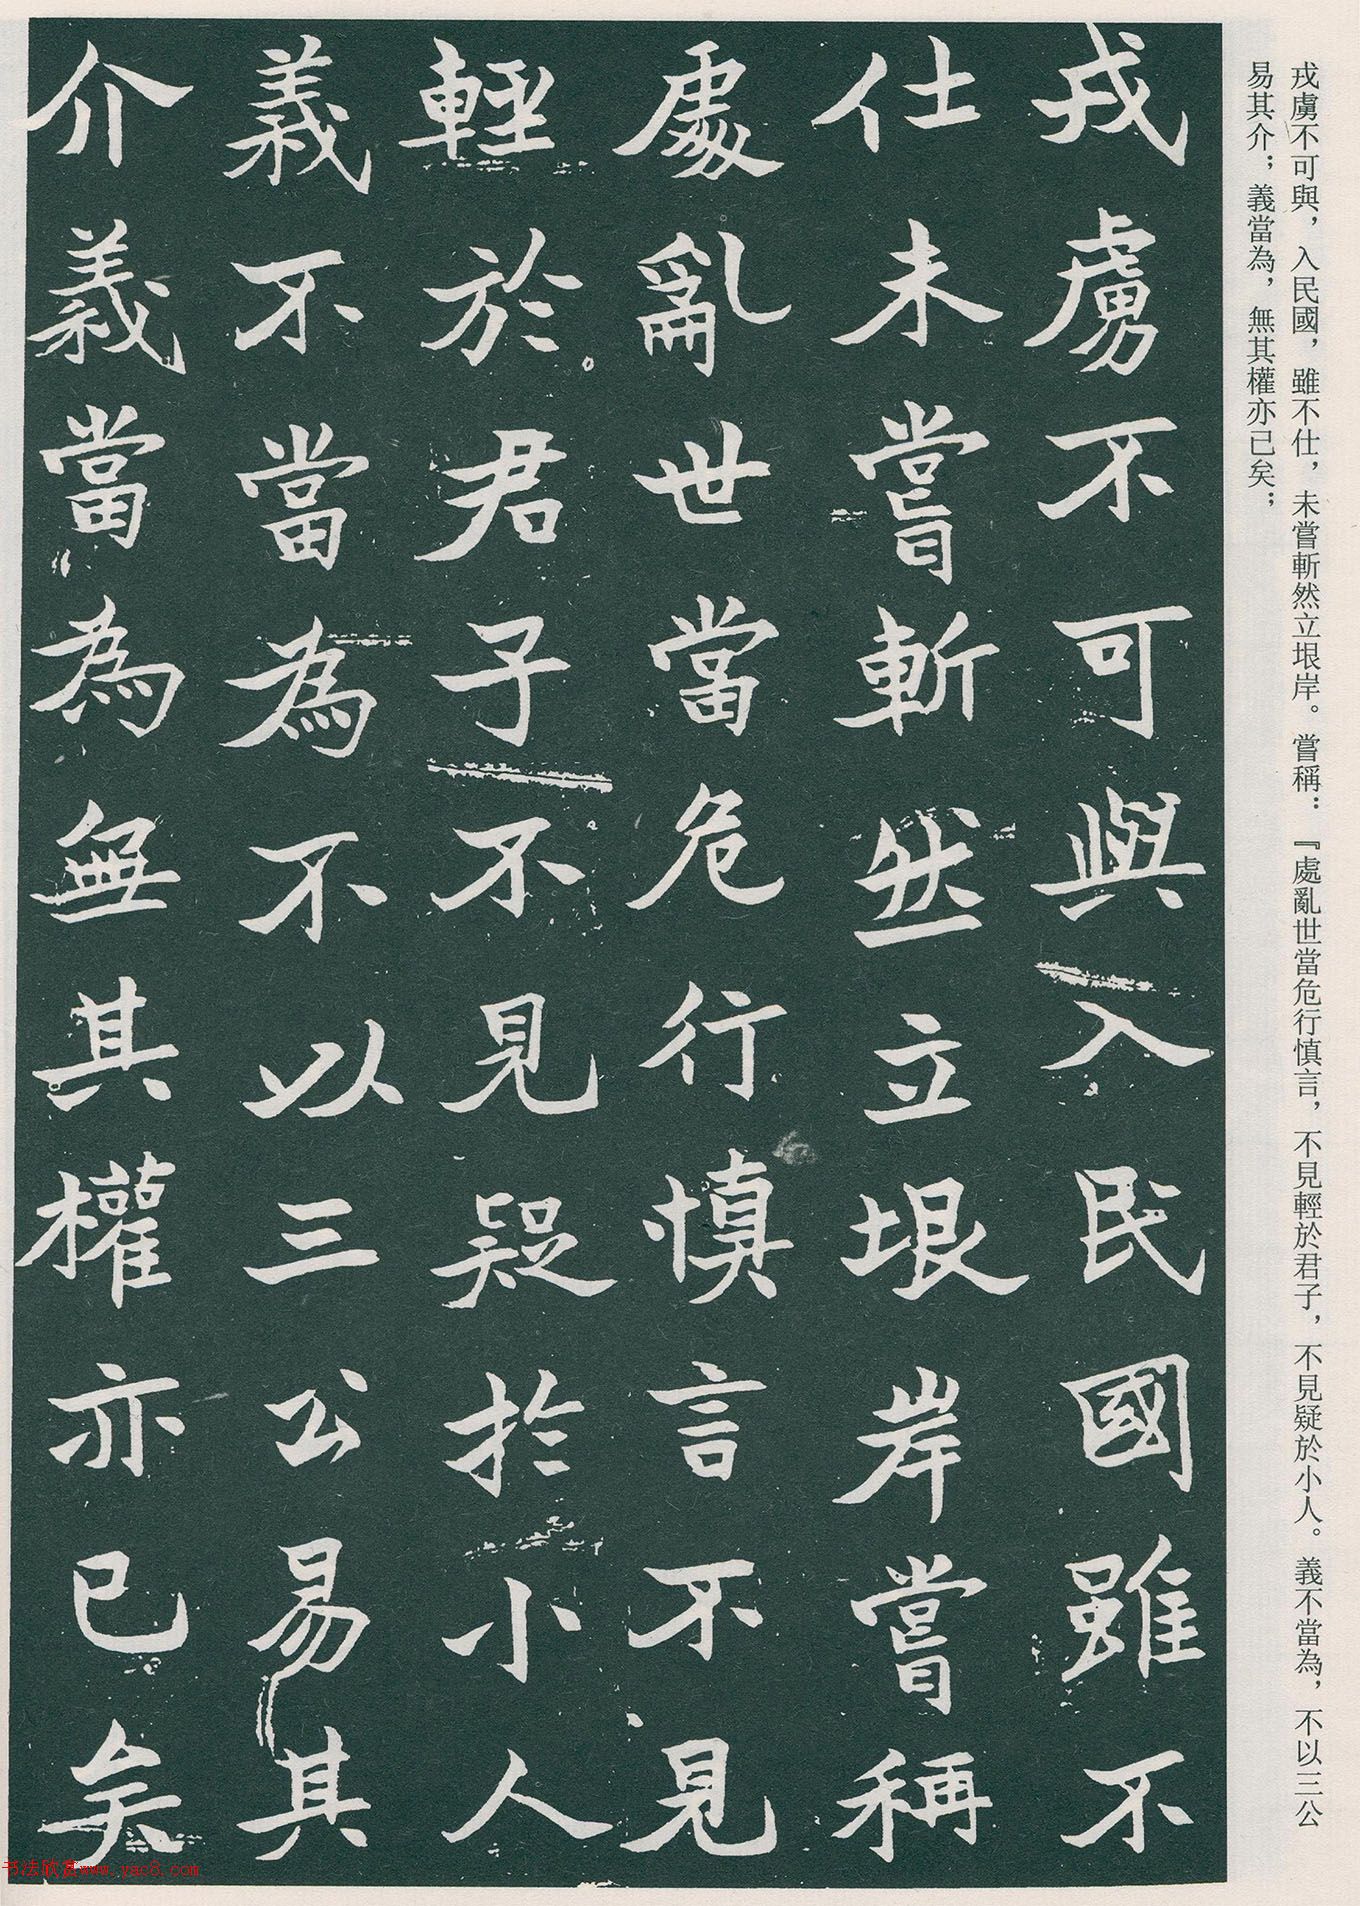 戎虜不可與，入民國，雖不仕，未嘗斬然立垠岸。嘗稱：『處亂世當危行慎言，不見輕於君子，不見疑於小人。義不當為，不以三公
易其介；義當為，無其權亦已矣；
戎虜不可與入民國雖不
仕未嘗斬然立垠岸嘗稱
處亂世當危行慎言不見
輕於君子不見疑於小人
義不當為不以三公易其
介義當為無其權亦已矣
书法欣赏www.yac8.com